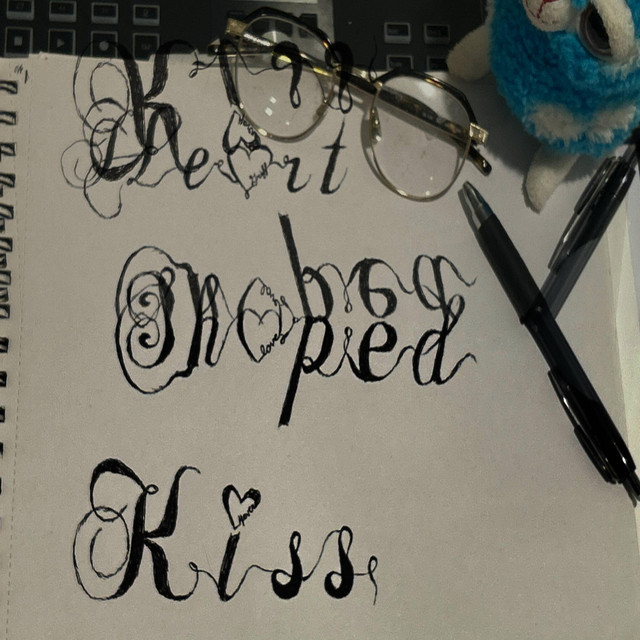 Heart
Shaped
Kiss